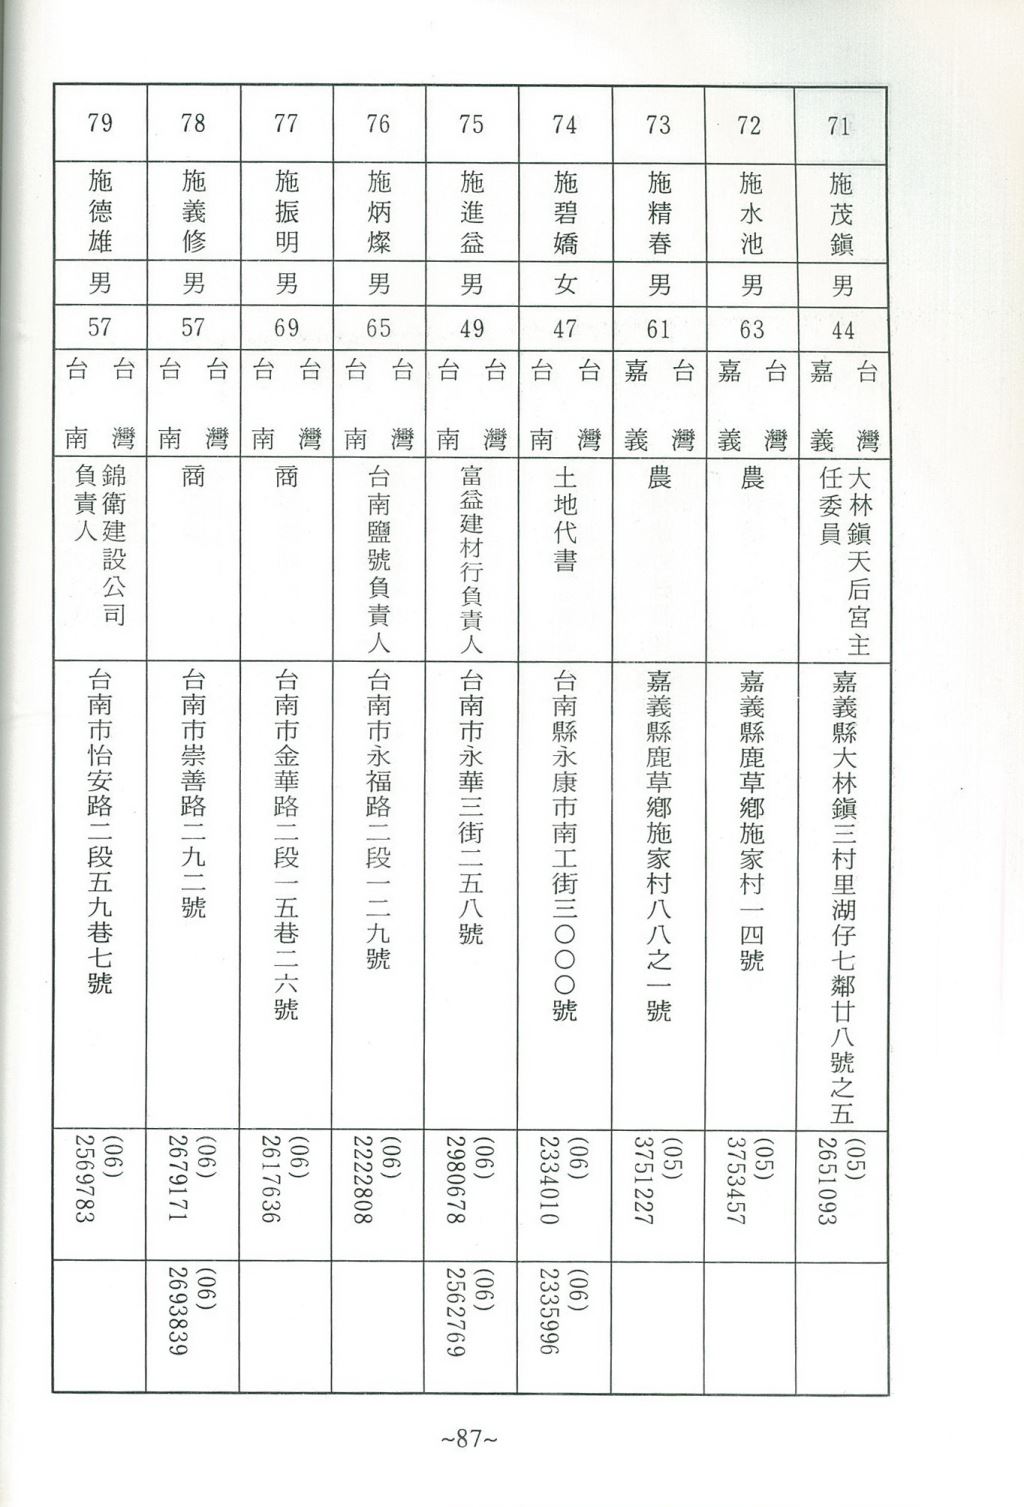 71
施茂鎮
男
44
台灣
嘉義
大林鎮天后宮主
任委員
嘉義縣大林鎮三村里湖仔七鄰廿八號之五
(05)
2651093
72
施水池
男
63
台灣
嘉義
農
嘉義縣鹿草鄉施家村一四號
(05)
3753457
73
施精春
男
61
台灣
嘉義
農
嘉義縣鹿草鄉施家村八八之一號
(05)
3751227
74
施碧嬌
女
47
台灣
台南
土地代書
台南縣永康市南工街三〇〇〇號
(06)
2334010
(06)
2335996
75
施進益
男
49
台灣
台南
富益建材行負責人
台南市永華三街二五八號
(06)
2980678
(06)
2562769
76
施炳燦
男
65
台灣
台南
台南鹽號負責人
台南市永福路二段一二九號
(06)
2222808
77
施振明
男
69
台灣
台南
商
台南市金華路二段一五巷二六號
(06)
2617636
78
施義修
男
57
台灣
台南
商
台南市崇善路二九二號
(06)
2679171
(06)
2693839
79
施德雄
男
57
台灣
台南
錦衛建設公司
負責人
台南市怡安路二段五九巷七號
(06)
2569783
~87~